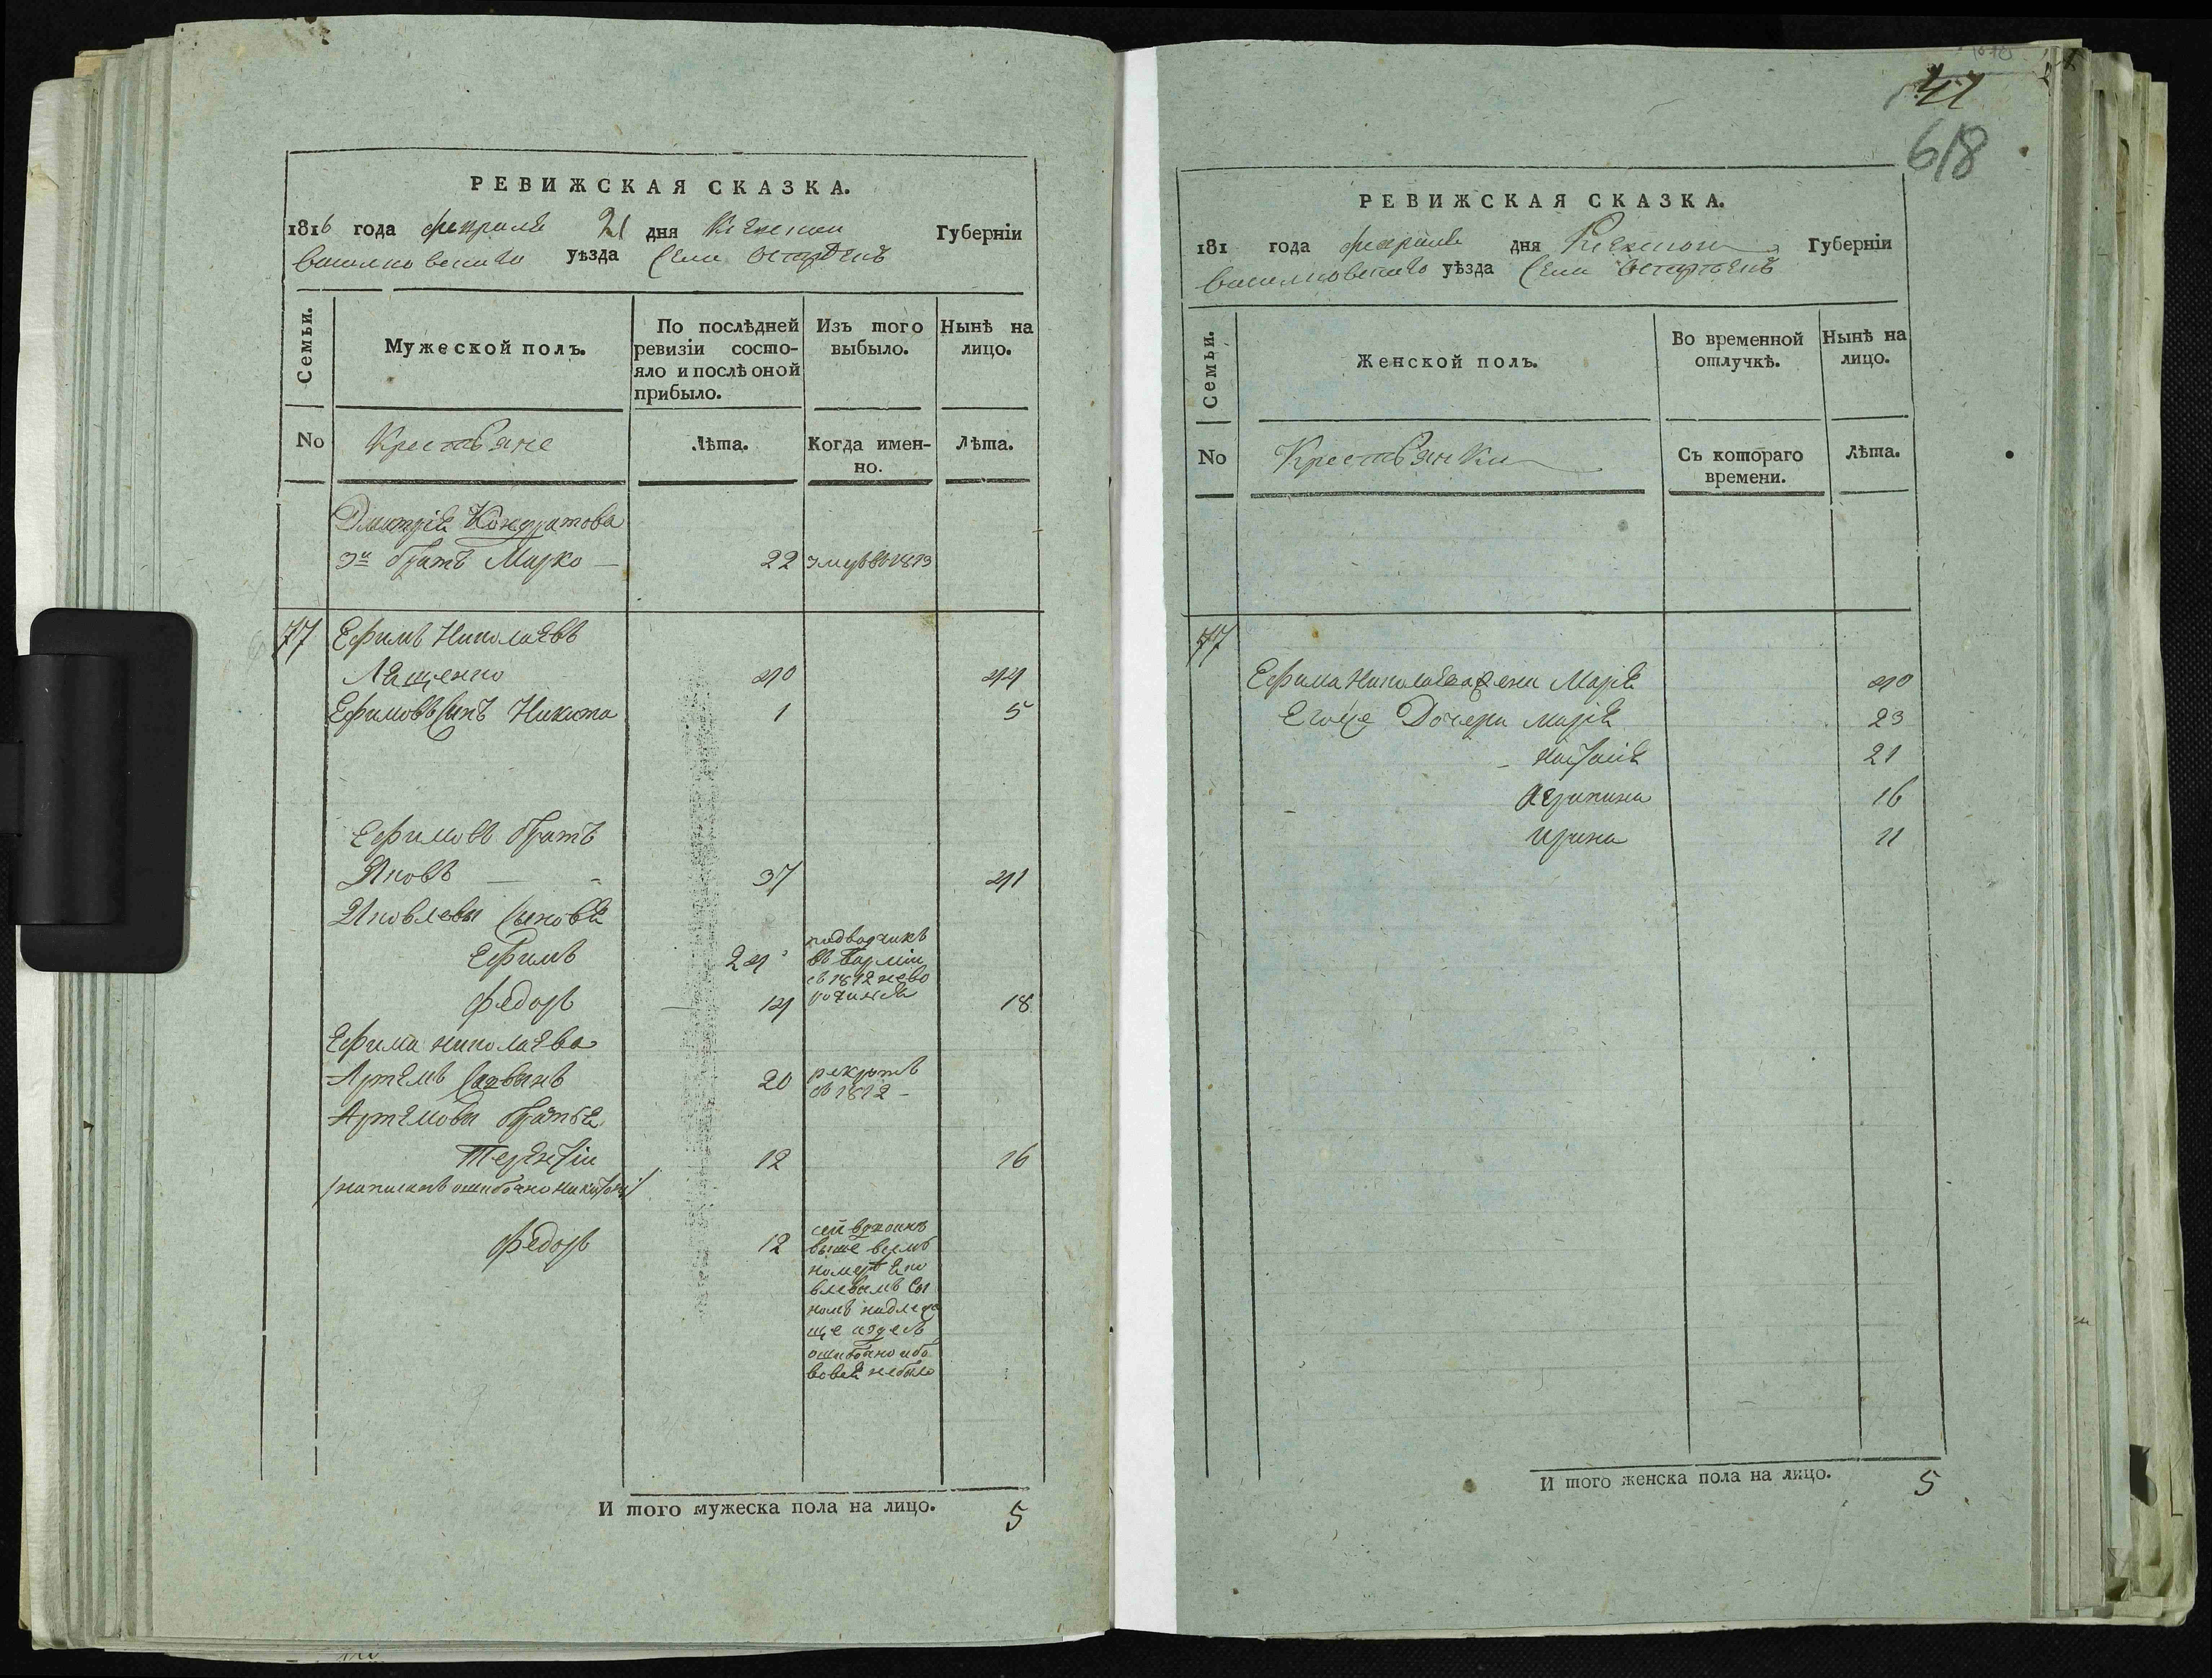 РЕВИЖСКАЯ СКАЗКА.
1816 года февраля 21 дня Киевской Губерніи
васильковскаго уѣзда Села
Семьи.
Мужеской полъ.
По послѣдней ревизіи состо-
яло и послѣ оной
прибыло.
Изъ того
выбыло.
Нынѣ на
лицо.
No
Крестьяне
Лѣта.
Когда имен-
но.
Лѣта.
Дмитрія Кондратова
3й братъ Марко — 22 умръ въ 1813
77 Ефимъ Николаевъ
Лященко 40 44
Ефимовъ Сынъ Никита 1 5
Ефимовъ братъ
Яковъ — 37 41
Яковлевы Сыновя
Ефимъ 24
въ 1812
Федоръ 14 18
Ефима николаева
Артемъ 20 рекрутъ
въ 1812 –
Артемовы братья
Терентіи 12 16
/написанъ ошибочно никитою/
Федоръ 12
выше
номе
ошибочно
небыло
И того мужеска пола на лицо. 5
41
618
РЕВИЖСКАЯ СКАЗКА.
181 года февраля дня Киевской Губерніи
васильковскаго уѣзда Села
Семьи.
Женской полъ.
Во временной
отлучкѣ.
Нынѣ на
лицо.
No
Крестьянки
Съ котораго
времени.
Лѣта.
77
Ефима Николаева жена Марія 40
Егоже Дочери марія 23
наталія 21
Агрипина 16
ирина 11
И того женска пола на лицо. 5